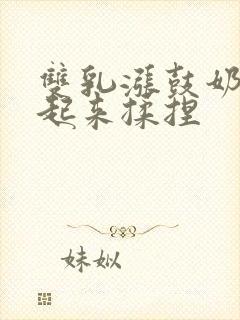 雙乳漲鼓奶
起来揉捏
妹姒